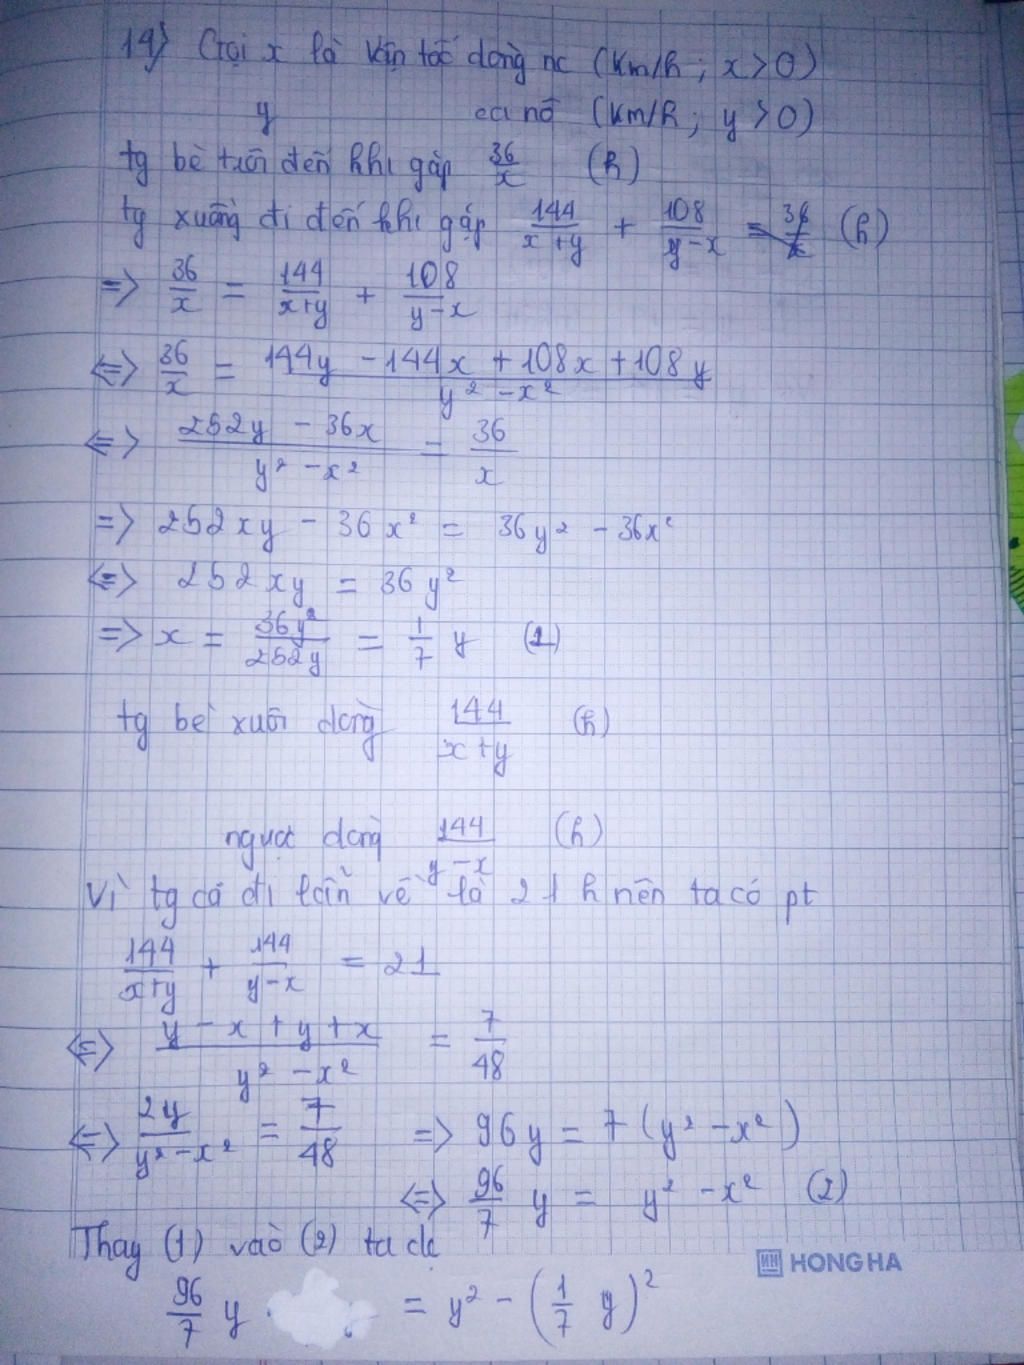 14) Gọi x là vận tốc dòng nc (km/h ; x > 0)
y ca nô (km/h ; y > 0)
tg bè trôi đến khi gặp 36/x (h)
tg xuồng đi đến khi gặp 144/(x+y) + 108/(y-x) = 36/x (h)
=> 36/x = 144/(x+y) + 108/(y-x)
<=> 36/x = (144y - 144x + 108x + 108y)/(y² - x²)
<=> (252y - 36x)/(y² - x²) = 36/x
=> 252xy - 36x² = 36y² - 36x²
<=> 252xy = 36y²
=> x = 36y²/252y = 1/7 y (1)
tg bè xuôi dòng 144/(x+y) (h)
ngược dòng 144/(y-x) (h)
Vì tg cả đi lẫn về là 21 h nên ta có pt
144/(x+y) + 144/(y-x) = 21
<=> (y - x + y + x)/(y² - x²) = 7/48
<=> 2y/(y² - x²) = 7/48 => 96y = 7(y² - x²)
<=> 96/7 y = y² - x² (2)
Thay (1) vào (2) ta dc
HH HONG HA
96/7 y = y² - (1/7 y)²